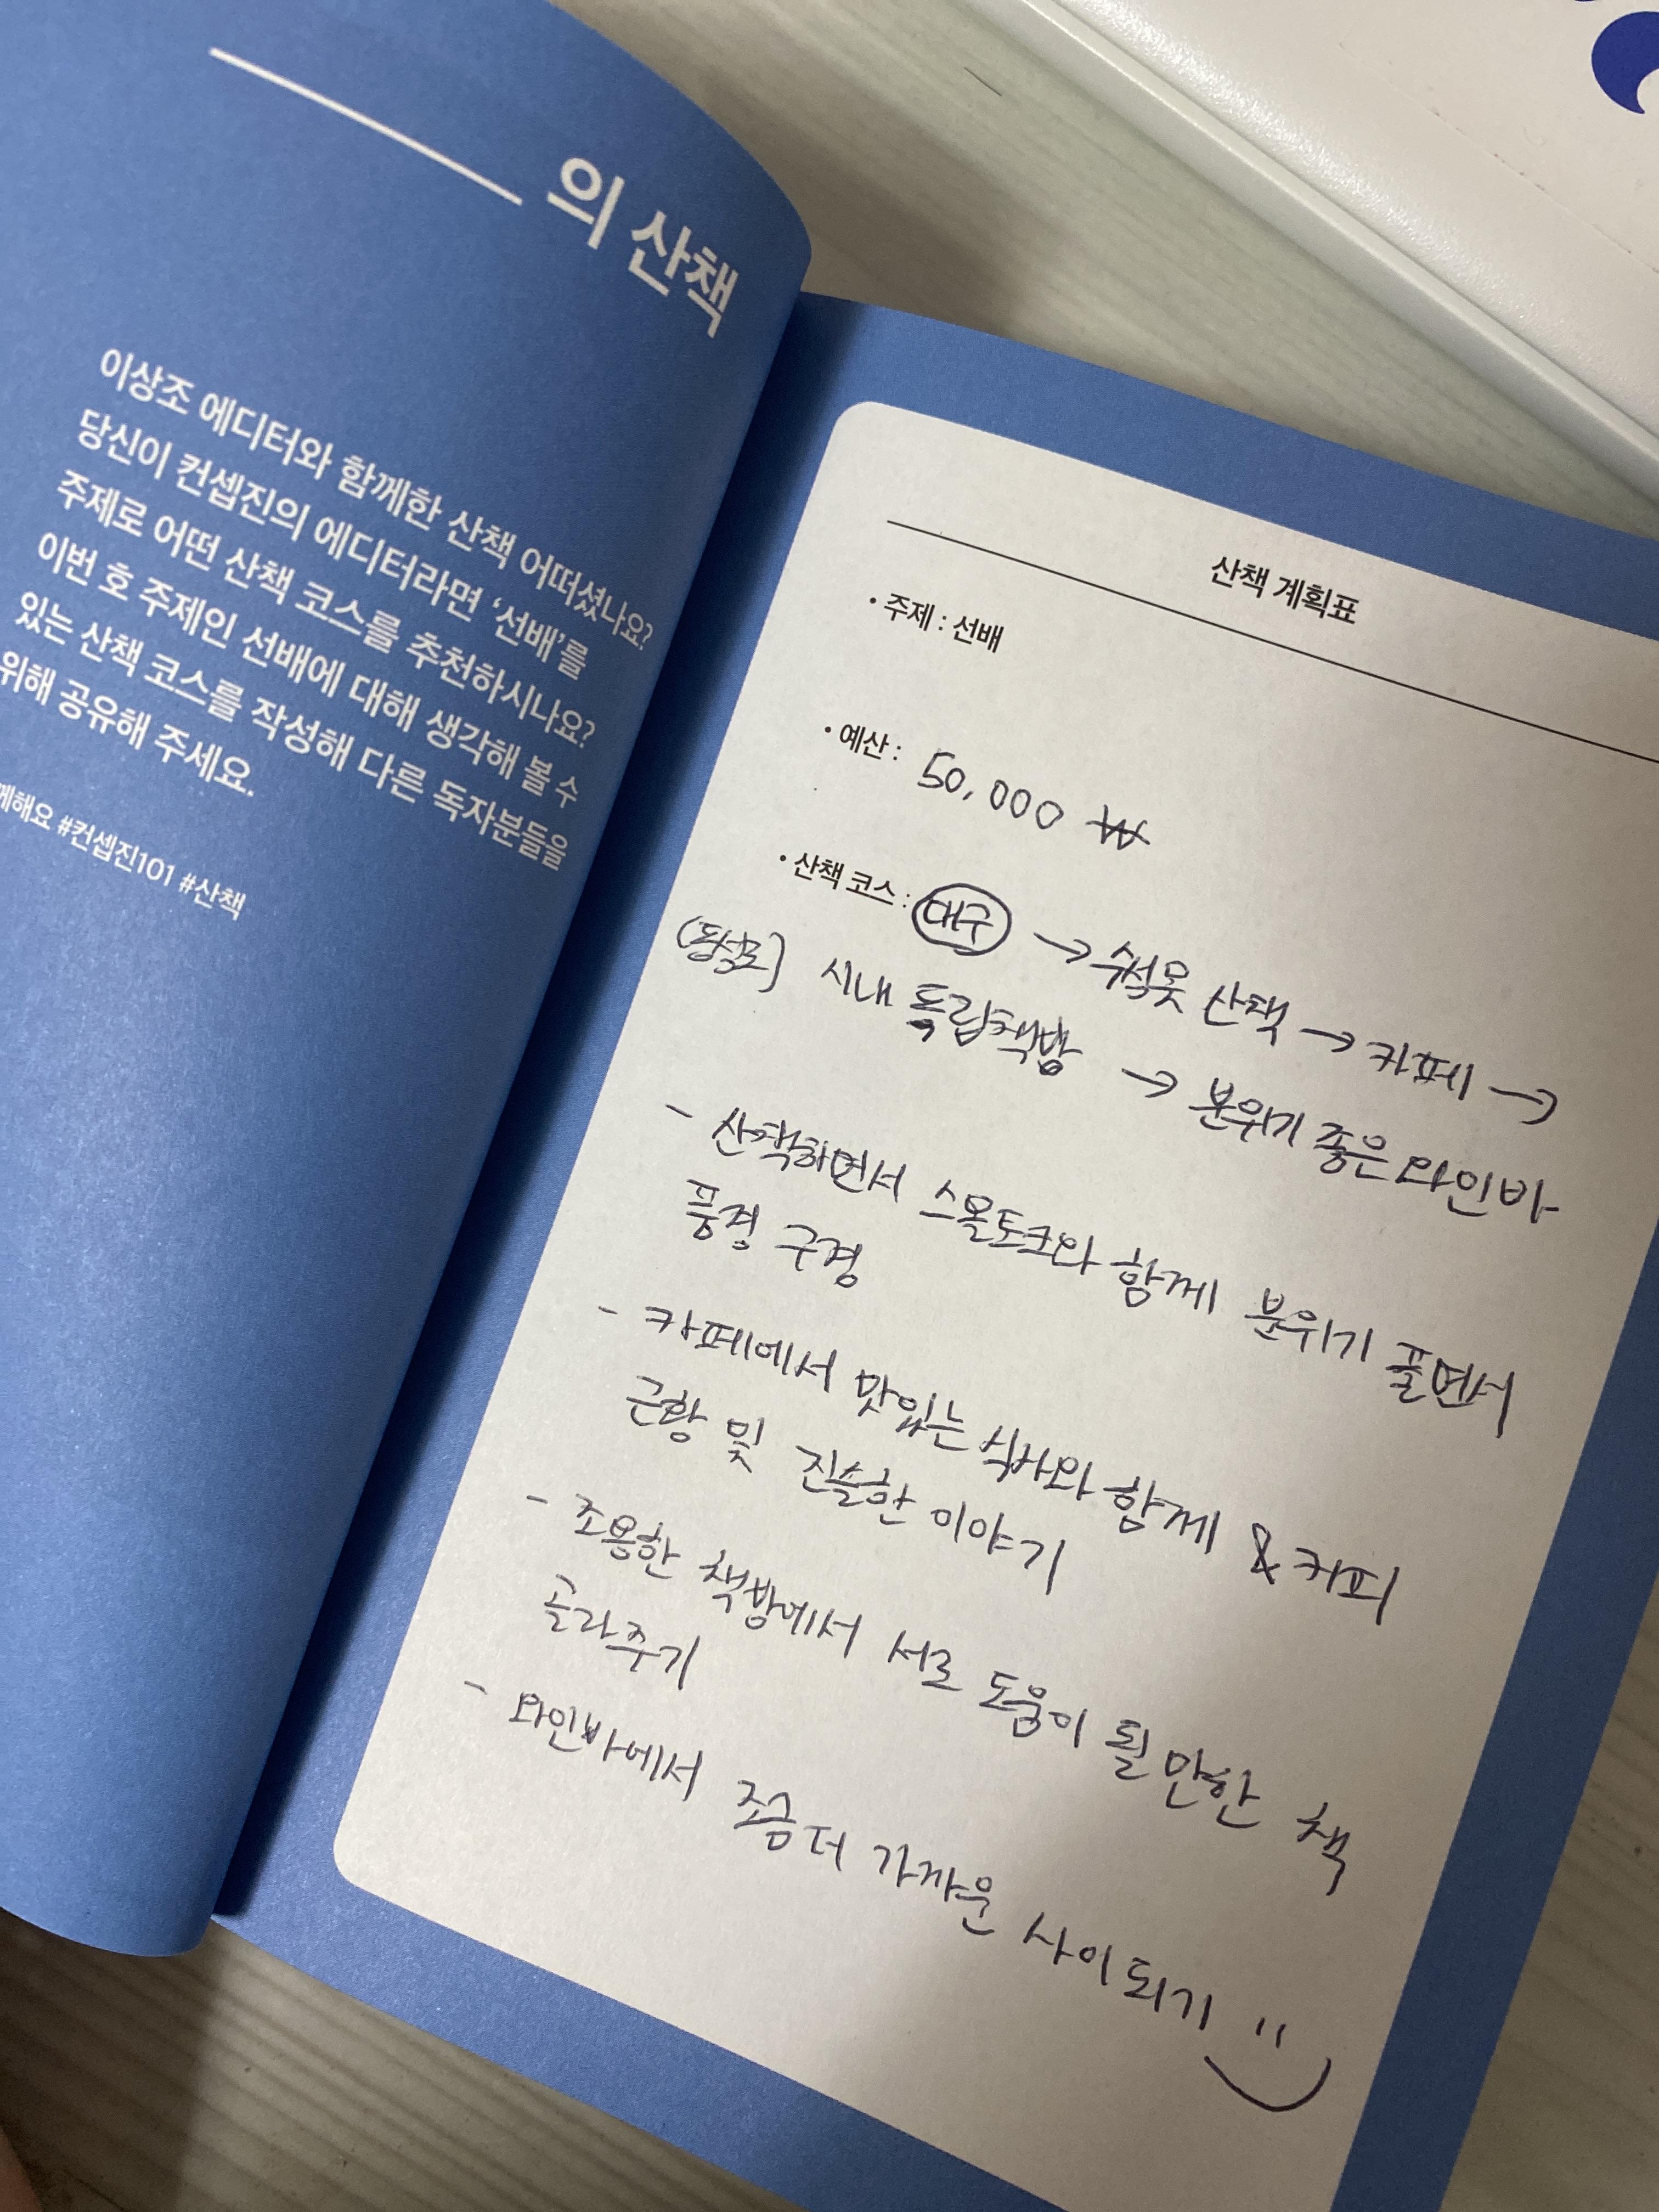 의 산책
이상조 에디터와 함께한 산책 어떠셨나요?
당신이 컨셉진의 에디터라면 ‘선배’를
주제로 어떤 산책 코스를 추천하시나요?
이번 호 주제인 선배에 대해 생각해 볼 수
있는 산책 코스를 작성해 다른 독자분들을
위해 공유해 주세요.
#컨셉진101 #산책
산책 계획표
• 주제 : 선배
• 예산 : 50,000 ₩
• 산책 코스 : 대구 → 수성못 산책 → 카페 →
(동성로) 시내 독립책방 → 분위기 좋은 와인바
- 산책하면서 스몰토크와 함께 분위기 풀면서
풍경 구경
- 카페에서 맛있는 식사와 함께 & 커피
근황 및 진솔한 이야기
- 조용한 책방에서 서로 도움이 될 만한 책
골라주기
- 와인바에서 조금 더 가까운 사이 되기